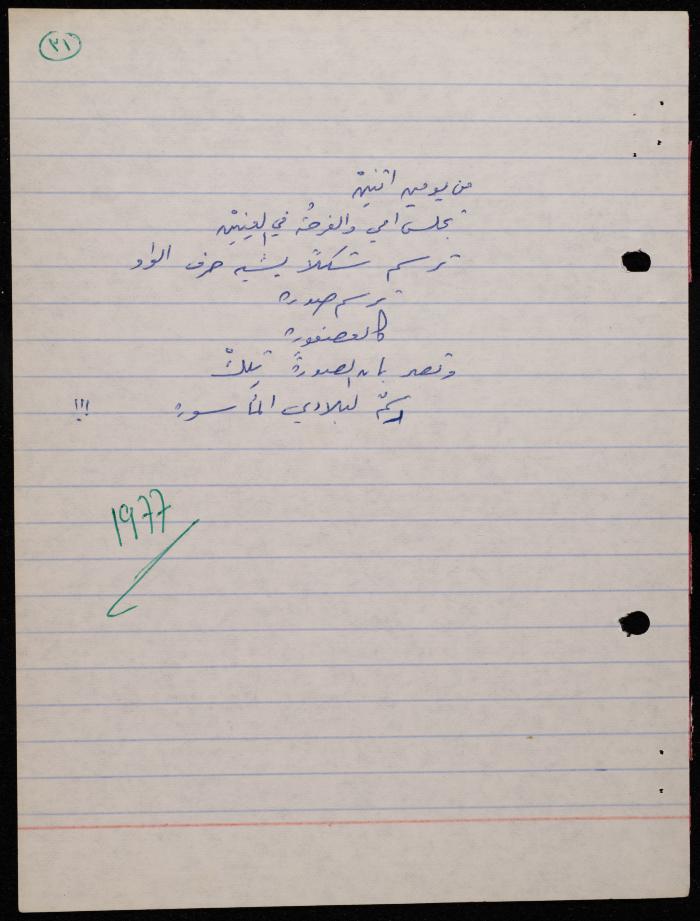 ٢١
من يومين اثنينْ
تجلس امي والفرحةُ في العينينْ
ترسم شكلاً يشبه حرف الواو
ترسم صورة
كالعصفورة
وتصر بان الصورةَ تلكْ
رسمٌ لبلادي المأسورة !!!
1977